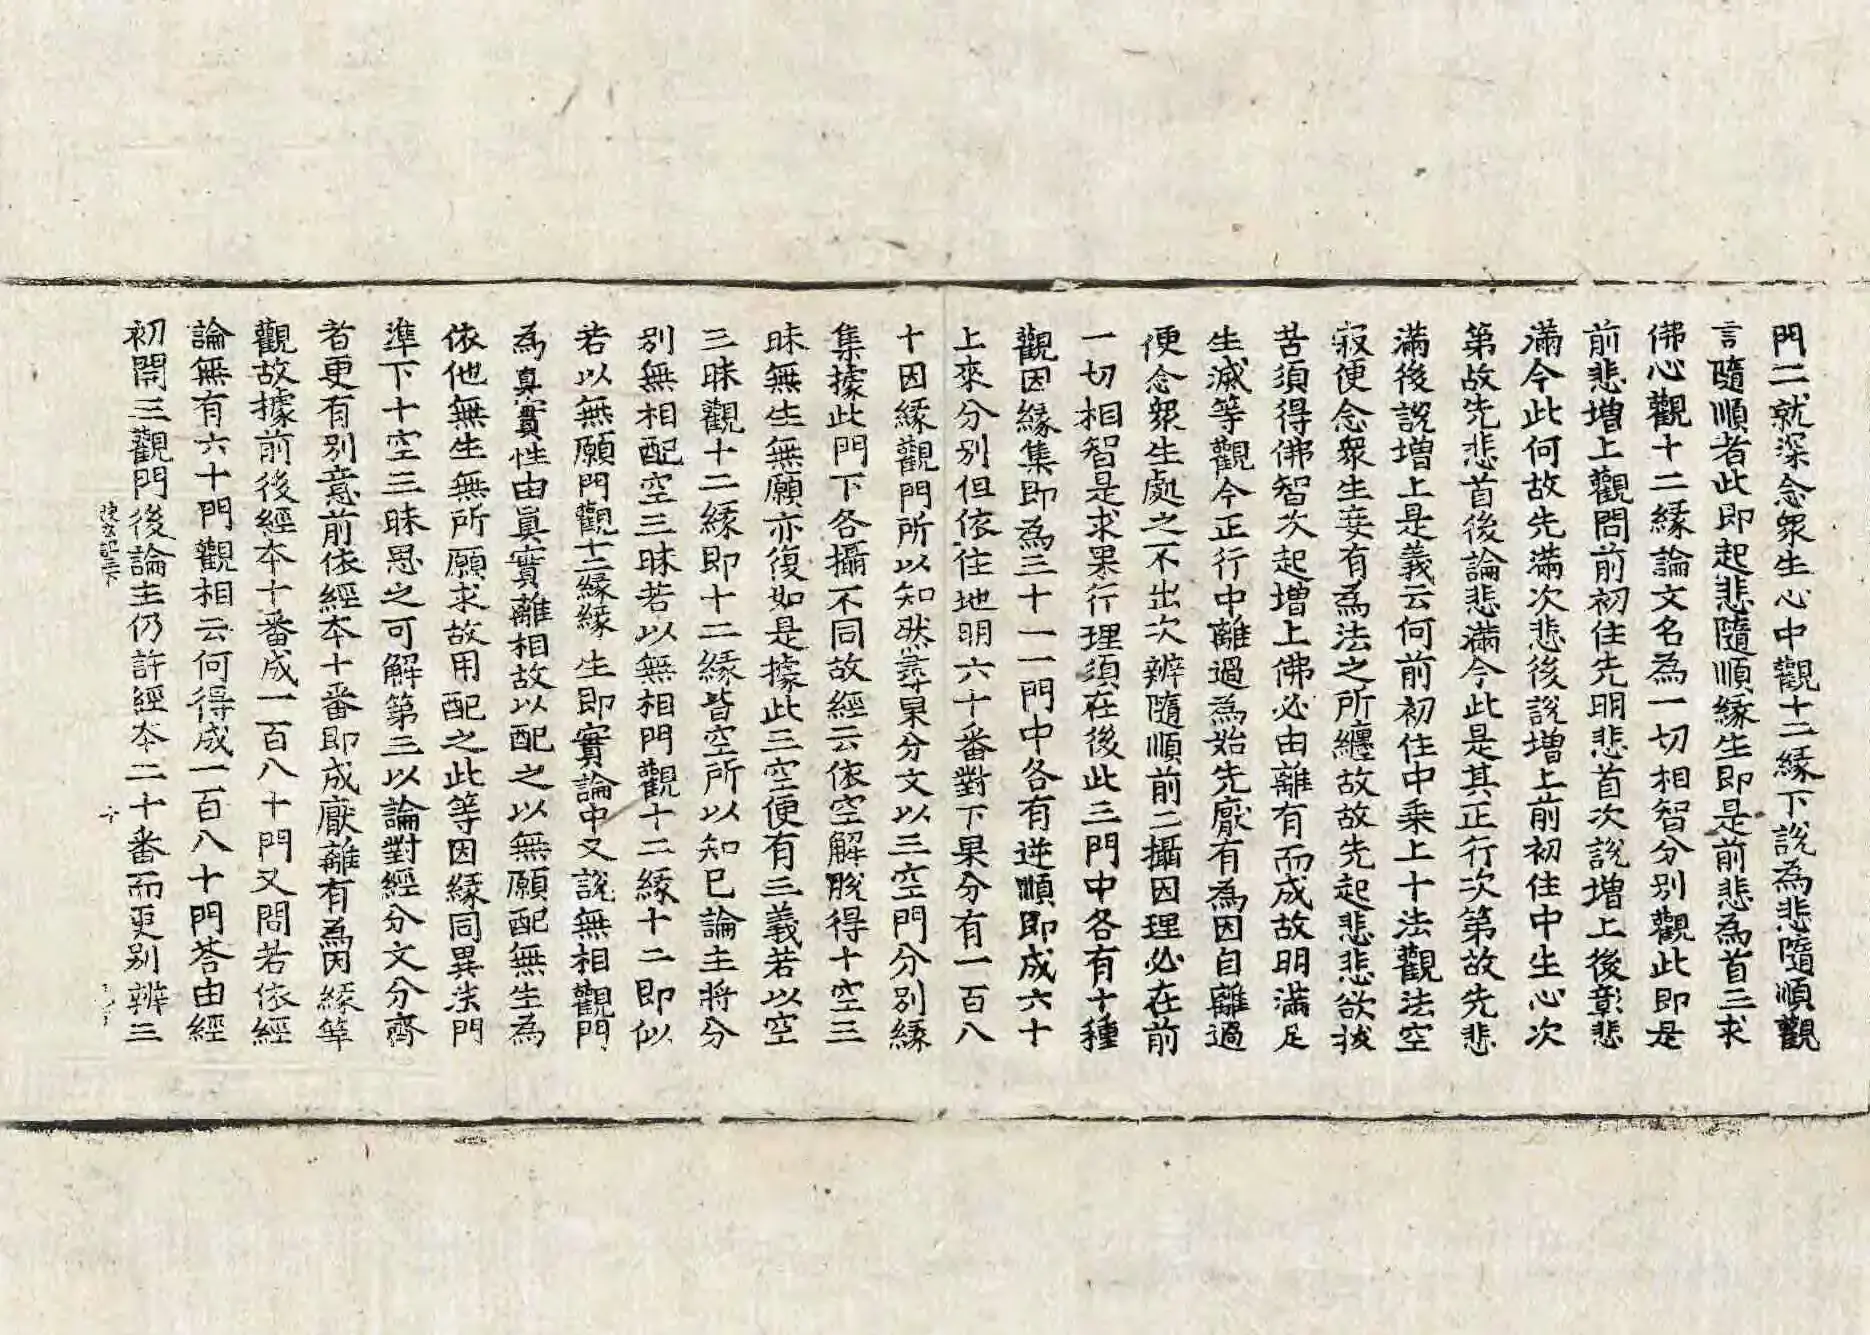 門二就深念衆生心中觀十二緣下說為悲隨順觀
言隨順者此即起悲隨順緣生即是前悲為首三求
佛心觀十二緣論文名為一切相智分別觀此即是
前悲增上觀問前初住先明悲首次說增上後彰悲
滿今此何故先滿次悲後說增上前初住中生心次
第故先悲首後論悲滿今此是其正行次第故先悲
滿後說增上是義云何前初住中乗上十法觀法空
寂便念衆生妄有為法之所纏故故先起悲悲欲拔
苦須得佛智次起增上佛必由離有而成故明滿足
生滅等觀今正行中離過為始先厭有為因自離過
便念衆生處之不出次辨隨順前二攝因理必在前
一切相智是求果行理須在後此三門中各有十種
觀因緣集即為三十一一門中各有逆順即成六十
上來分別但依住地明六十番對下果分有一百八
十因緣觀門所以知然尋果分文以三空門分別緣
集據此門下各攝不同故經云依空解脫得十空三
昧無生無願亦復如是據此三空便有三義若以空
三昧觀十二緣即十二緣皆空所以知已論主將分
別無相配空三昧若以無相門觀十二緣十二即似
若以無願門觀十二緣緣生即實論中又說無相觀門
為真實性由真實離相故以配之以無願配無生為
依他無生無所願求故用配之此等因緣同異法門
準下十空三昧思之可解第三以論對經分文分齊
者更有別意前依經本十番即成厭離有為因緣等
觀故據前後經本十番成一百八十門又問若依經
論無有六十門觀相云何得成一百八十門荅由經
初開三觀門後論主仍許經本二十番而更別辨三